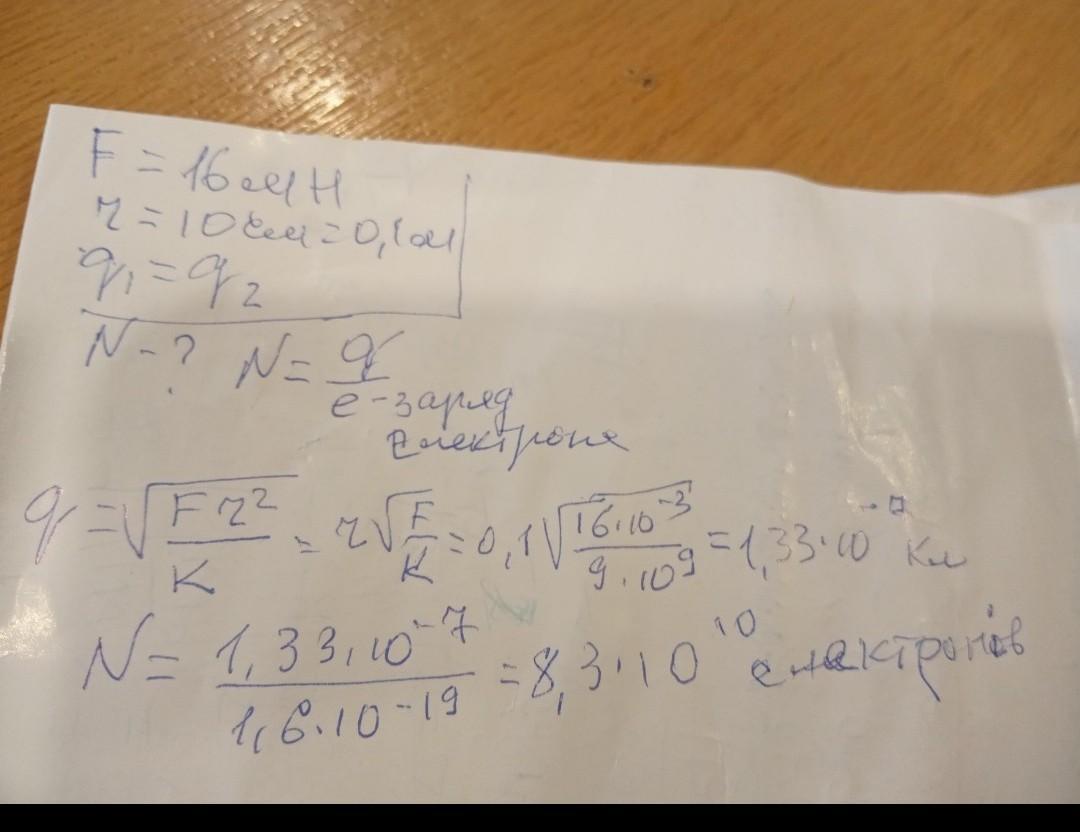 F = 16 мН
r = 10 см = 0,1 м
q₁ = q₂
N - ? N = q/e - заряд
електрона
q = √(F r²/K) = r√(F/K) = 0,1√(16·10⁻³/9·10⁹) = 1,33·10⁻⁷ Кл
N = 1,33·10⁻⁷/1,6·10⁻¹⁹ = 8,3·10¹⁰ електронів